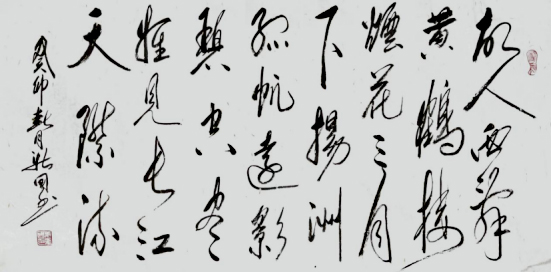 故人西辞
黄鹤楼
烟花三月
下扬洲
孤帆远影
碧空尽
唯见长江
天际流
癸卯